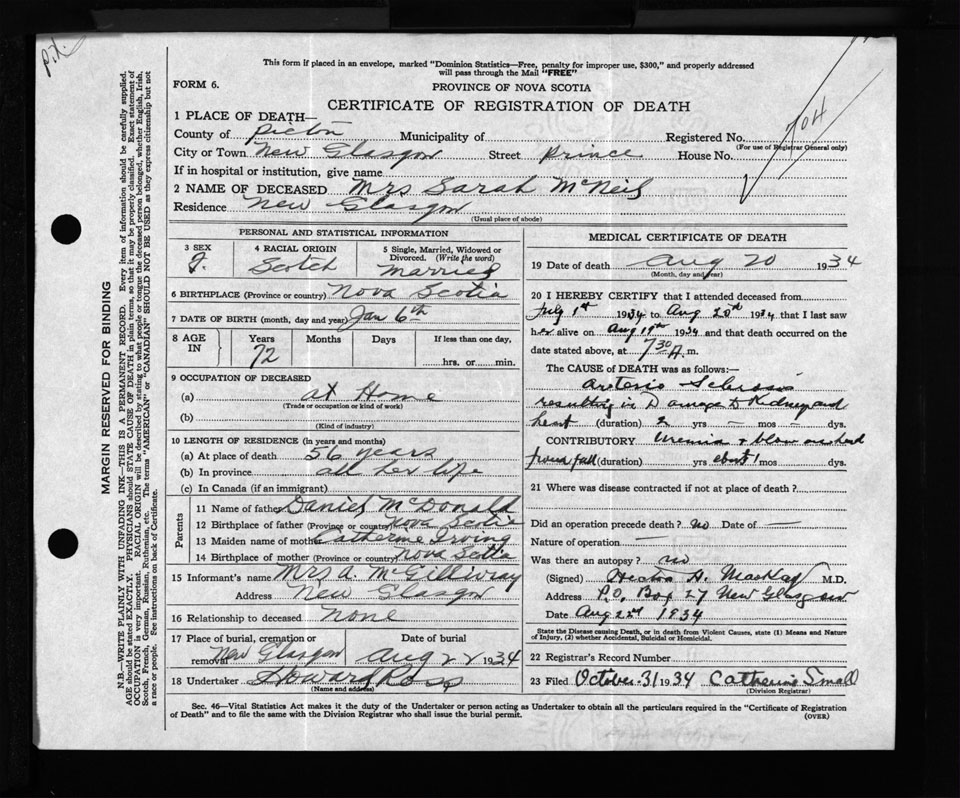 P.X.
This form if placed in an envelope, marked "Dominion Statistics—Free, penalty for improper use, $300," and properly addressed
will pass through the Mail "FREE"
FORM 6.
PROVINCE OF NOVA SCOTIA
CERTIFICATE OF REGISTRATION OF DEATH
704
1 PLACE OF DEATH—
County of Pictou Municipality of Registered No.
(For use of Registrar General only)
City or Town New Glasgow Street Prince House No.
If in hospital or institution, give name
2 NAME OF DECEASED Mrs Sarah McNeil
Residence New Glasgow
(Usual place of abode)
MARGIN RESERVED FOR BINDING
N.B.—WRITE PLAINLY WITH UNFADING INK—THIS IS A PERMANENT RECORD. Every item of information should be carefully supplied.
AGE should be stated EXACTLY. PHYSICIANS should STATE CAUSE OF DEATH in plain terms, so that it may be properly classified. Exact statement of
OCCUPATION is very important. RACIAL ORIGIN will be described by stating to what people or tongue the deceased person belonged, whether English, Irish,
Scotch, French, German, Russian, Ruthenian, etc. The terms "AMERICAN" or "CANADIAN" SHOULD NOT BE USED as they express citizenship but not
a race or people. See instructions on back of Certificate.
PERSONAL AND STATISTICAL INFORMATION
3 SEX
F.
4 RACIAL ORIGIN
Scotch
5 Single, Married, Widowed or
Divorced. (Write the word)
Married
6 BIRTHPLACE (Province or country) Nova Scotia
7 DATE OF BIRTH (month, day and year) Jan 6th
8 AGE
IN
Years
72
Months
Days
If less than one day,
hrs. or min.
9 OCCUPATION OF DECEASED
(a) at Home
(Trade or occupation or kind of work)
(b)
(Kind of industry)
10 LENGTH OF RESIDENCE (in years and months)
(a) At place of death 56 years
(b) In province all her life
(c) In Canada (if an immigrant)
Parents
11 Name of father Daniel McDonald
12 Birthplace of father (Province or country) Nova Scotia
13 Maiden name of mother Catherine Irving
14 Birthplace of mother (Province or country) Nova Scotia
15 Informant's name Mrs A. McGillivray
Address New Glasgow
16 Relationship to deceased None
17 Place of burial, cremation or
removal New Glasgow
Date of burial
Aug 22 1934
18 Undertaker Howard Ross
(Name and address)
MEDICAL CERTIFICATE OF DEATH
19 Date of death Aug 20 1934
(Month, day and year)
20 I HEREBY CERTIFY that I attended deceased from
July 1st 1934 to Aug 20th 1934 that I last saw
her alive on Aug 19th 1934 and that death occurred on the
date stated above, at 7 30 A m.
The CAUSE of DEATH was as follows:—
Arterio Sclerosis
resulting in Damage to Kidney and
heart (duration) 2 yrs — mos — dys.
CONTRIBUTORY Uremia + blow on head
from fall (duration) yrs about 1 mos dys.
21 Where was disease contracted if not at place of death?
Did an operation precede death? no Date of —
Nature of operation —
Was there an autopsy? no
(Signed) Hector H. MacKay M.D.
Address P.O. Box 27 New Glasgow
Date Aug 22nd 1934
State the Disease causing Death, or in death from Violent Causes, state (1) Means and Nature
of Injury, (2) whether Accidental, Suicidal or Homicidal.
22 Registrar's Record Number
23 Filed October 31 1934 Catherine Small
(Division Registrar)
Sec. 46—Vital Statistics Act makes it the duty of the Undertaker or person acting as Undertaker to obtain all the particulars required in the "Certificate of Registration
of Death" and to file the same with the Division Registrar who shall issue the burial permit.
(OVER)